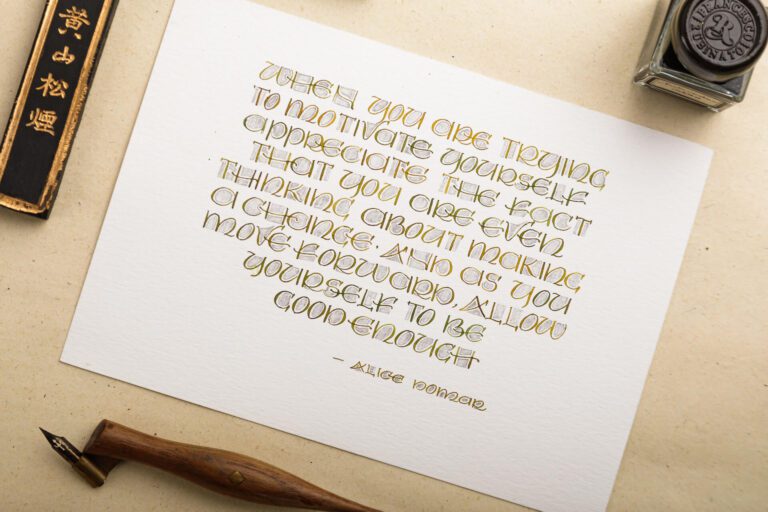 黄山松煙
FRANCESCO
WHEN YOU ARE TRYING
TO MOTIVATE YOURSELF
APPRECIATE THE FACT
THAT YOU ARE EVEN
THINKING ABOUT MAKING
A CHANGE. AND AS YOU
MOVE FORWARD, ALLOW
YOURSELF TO BE
GOOD ENOUGH
- ALICE DOMAR